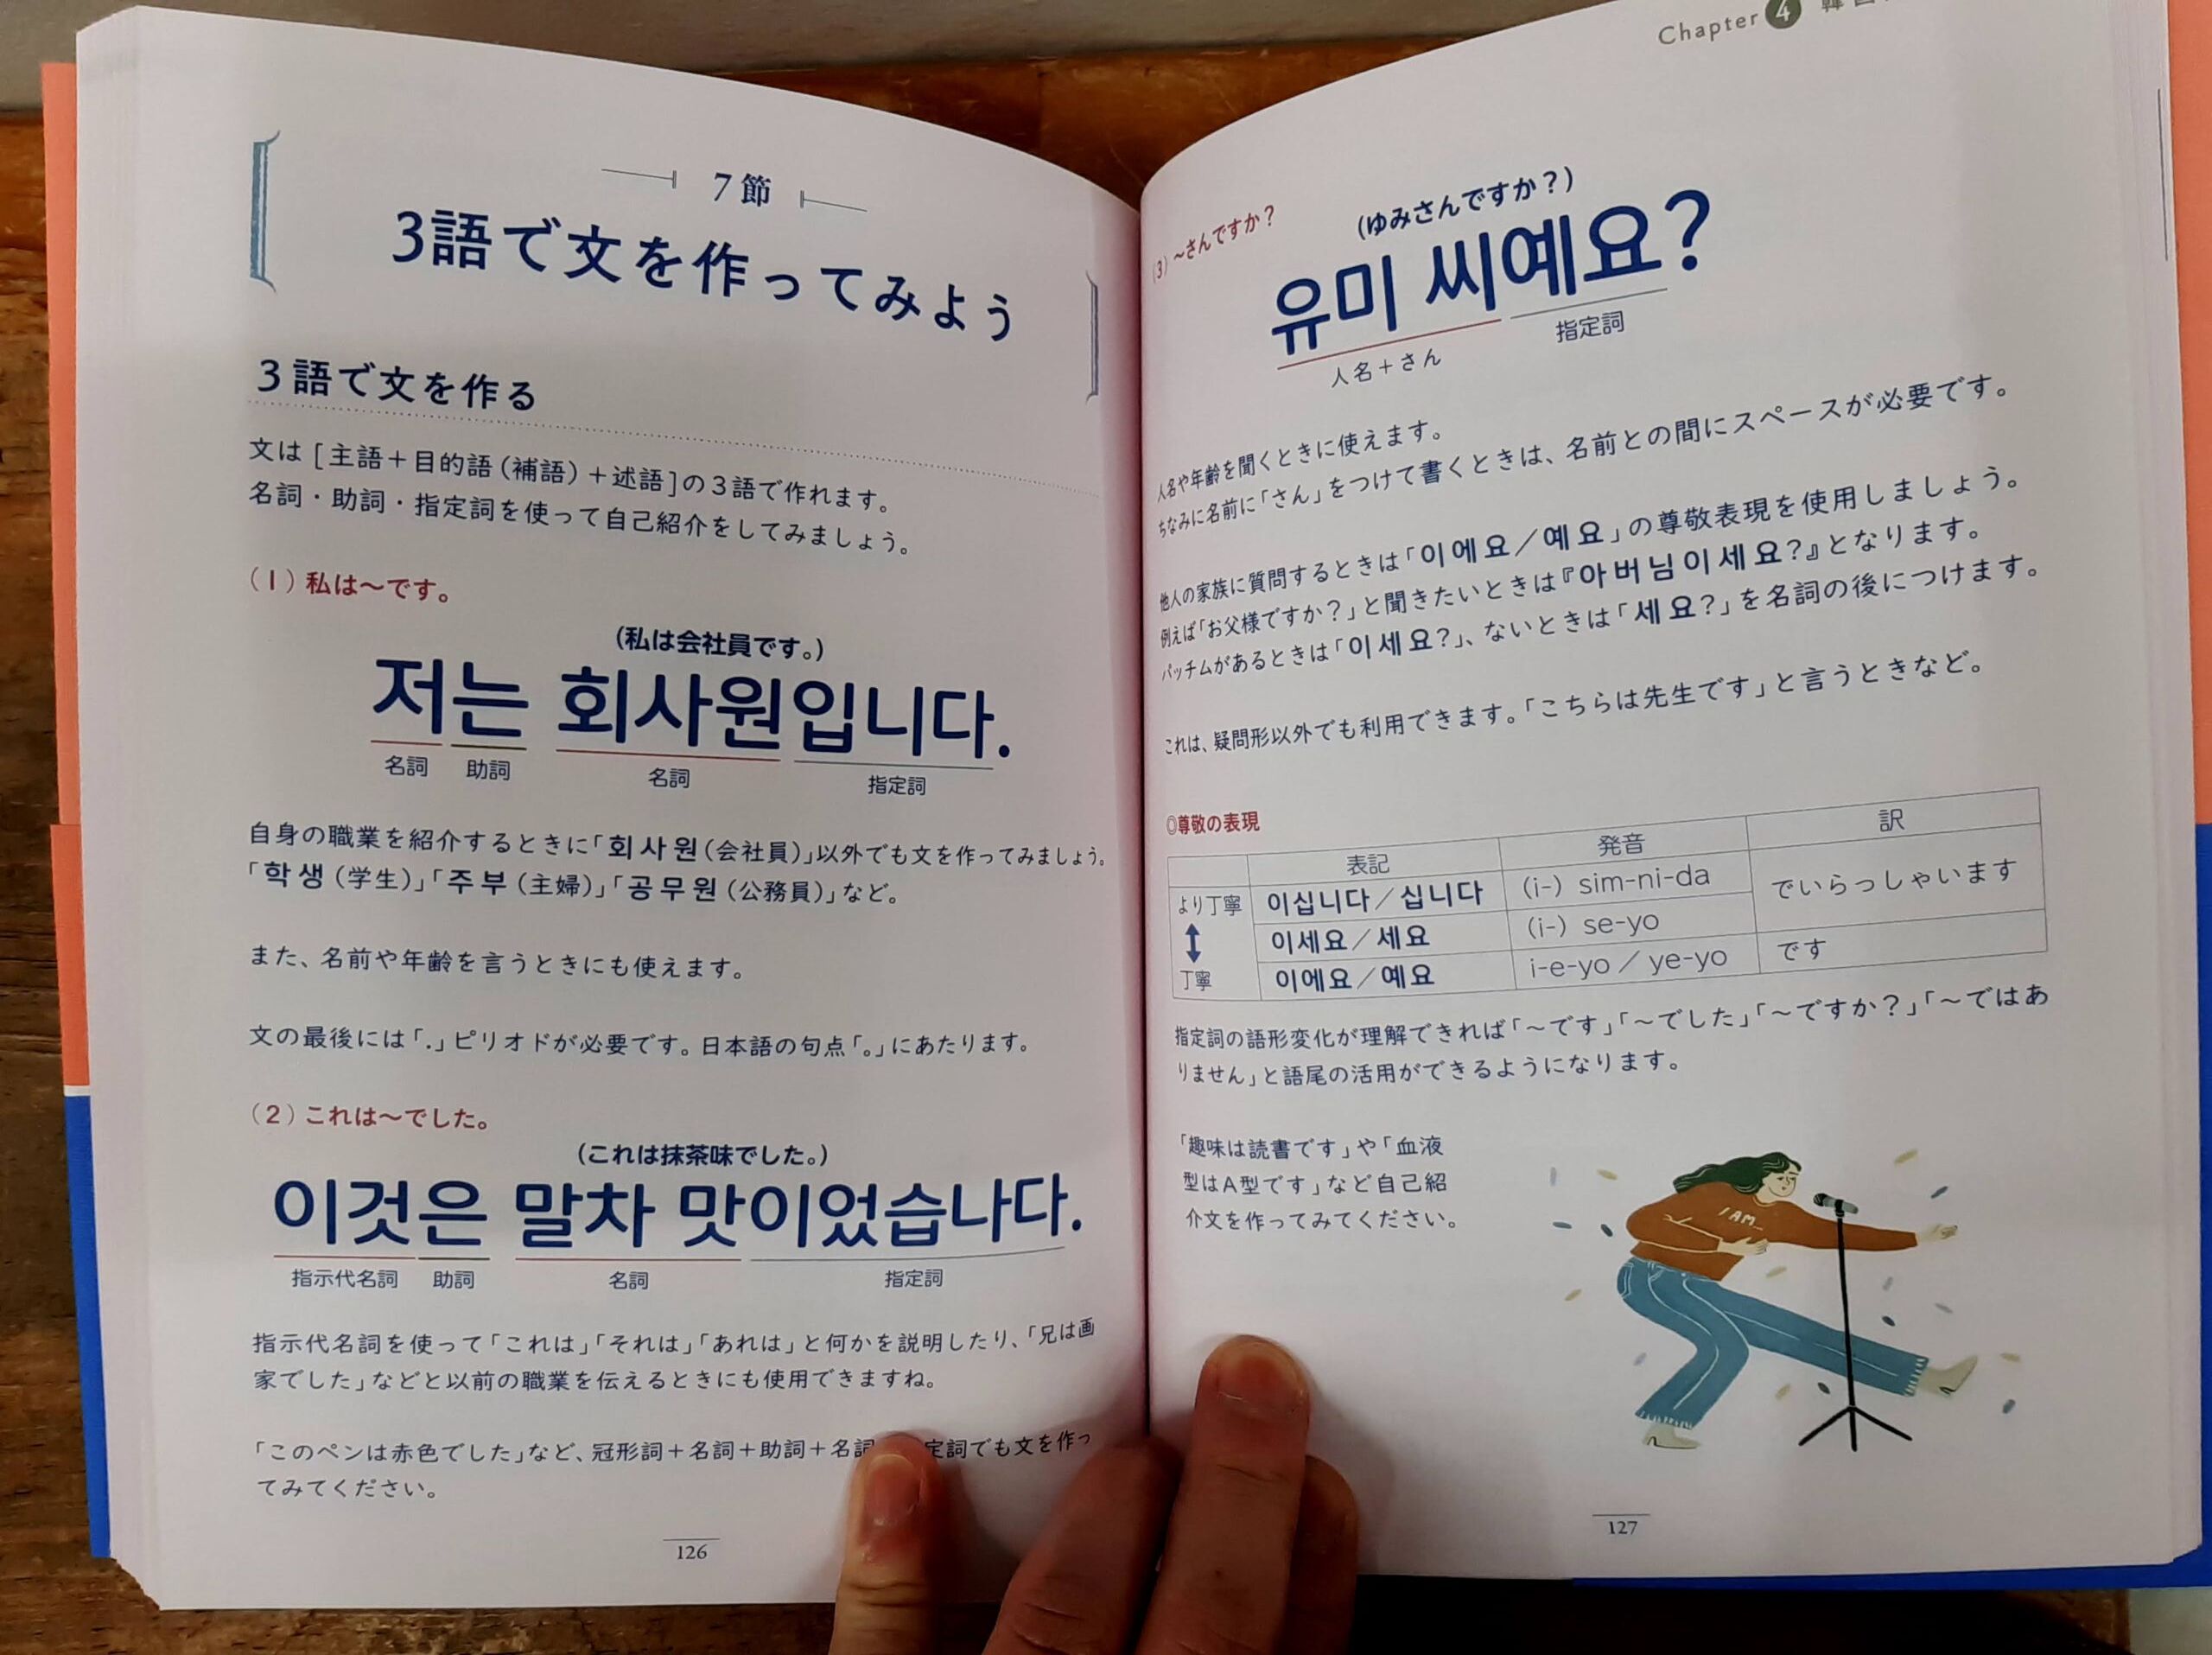 7節
3語で文を作ってみよう
3語で文を作る
文は[主語＋目的語（補語）＋述語]の3語で作れます。
名詞・助詞・指定詞を使って自己紹介をしてみましょう。
（1）私は～です。
（私は会社員です。）
저는 회사원입니다.
名詞 助詞 名詞 指定詞
自身の職業を紹介するときに「회사원（会社員）」以外でも文を作ってみましょう。
「학생（学生）」「주부（主婦）」「공무원（公務員）」など。
また、名前や年齢を言うときにも使えます。
文の最後には「.」ピリオドが必要です。日本語の句点「。」にあたります。
（2）これは～でした。
（これは抹茶味でした。）
이것은 말차 맛이었습나다.
指示代名詞 助詞 名詞 指定詞
指示代名詞を使って「これは」「それは」「あれは」と何かを説明したり、「兄は画
家でした」などと以前の職業を伝えるときにも使用できますね。
「このペンは赤色でした」など、冠形詞＋名詞＋助詞＋名詞 定詞でも文を作っ
てみてください。
126
Chapter 4
（3）～さんですか？
（ゆみさんですか？）
유미 씨예요?
人名＋さん 指定詞
人名や年齢を聞くときに使えます。
ちなみに名前に「さん」をつけて書くときは、名前との間にスペースが必要です。
他人の家族に質問するときは「이에요／예요」の尊敬表現を使用しましょう。
例えば「お父様ですか？」と聞きたいときは『아버님이세요?』となります。
パッチムがあるときは「이세요?」、ないときは「세요?」を名詞の後につけます。
これは、疑問形以外でも利用できます。「こちらは先生です」と言うときなど。
◎尊敬の表現
表記 発音 訳
より丁寧 이십니다／십니다 (i-) sim-ni-da でいらっしゃいます
이세요／세요 (i-) se-yo
丁寧 이에요／예요 i-e-yo／ye-yo です
指定詞の語形変化が理解できれば「～です」「～でした」「～ですか？」「～ではあ
りません」と語尾の活用ができるようになります。
「趣味は読書です」や「血液
型はA型です」など自己紹
介文を作ってみてください。
I AM_
127